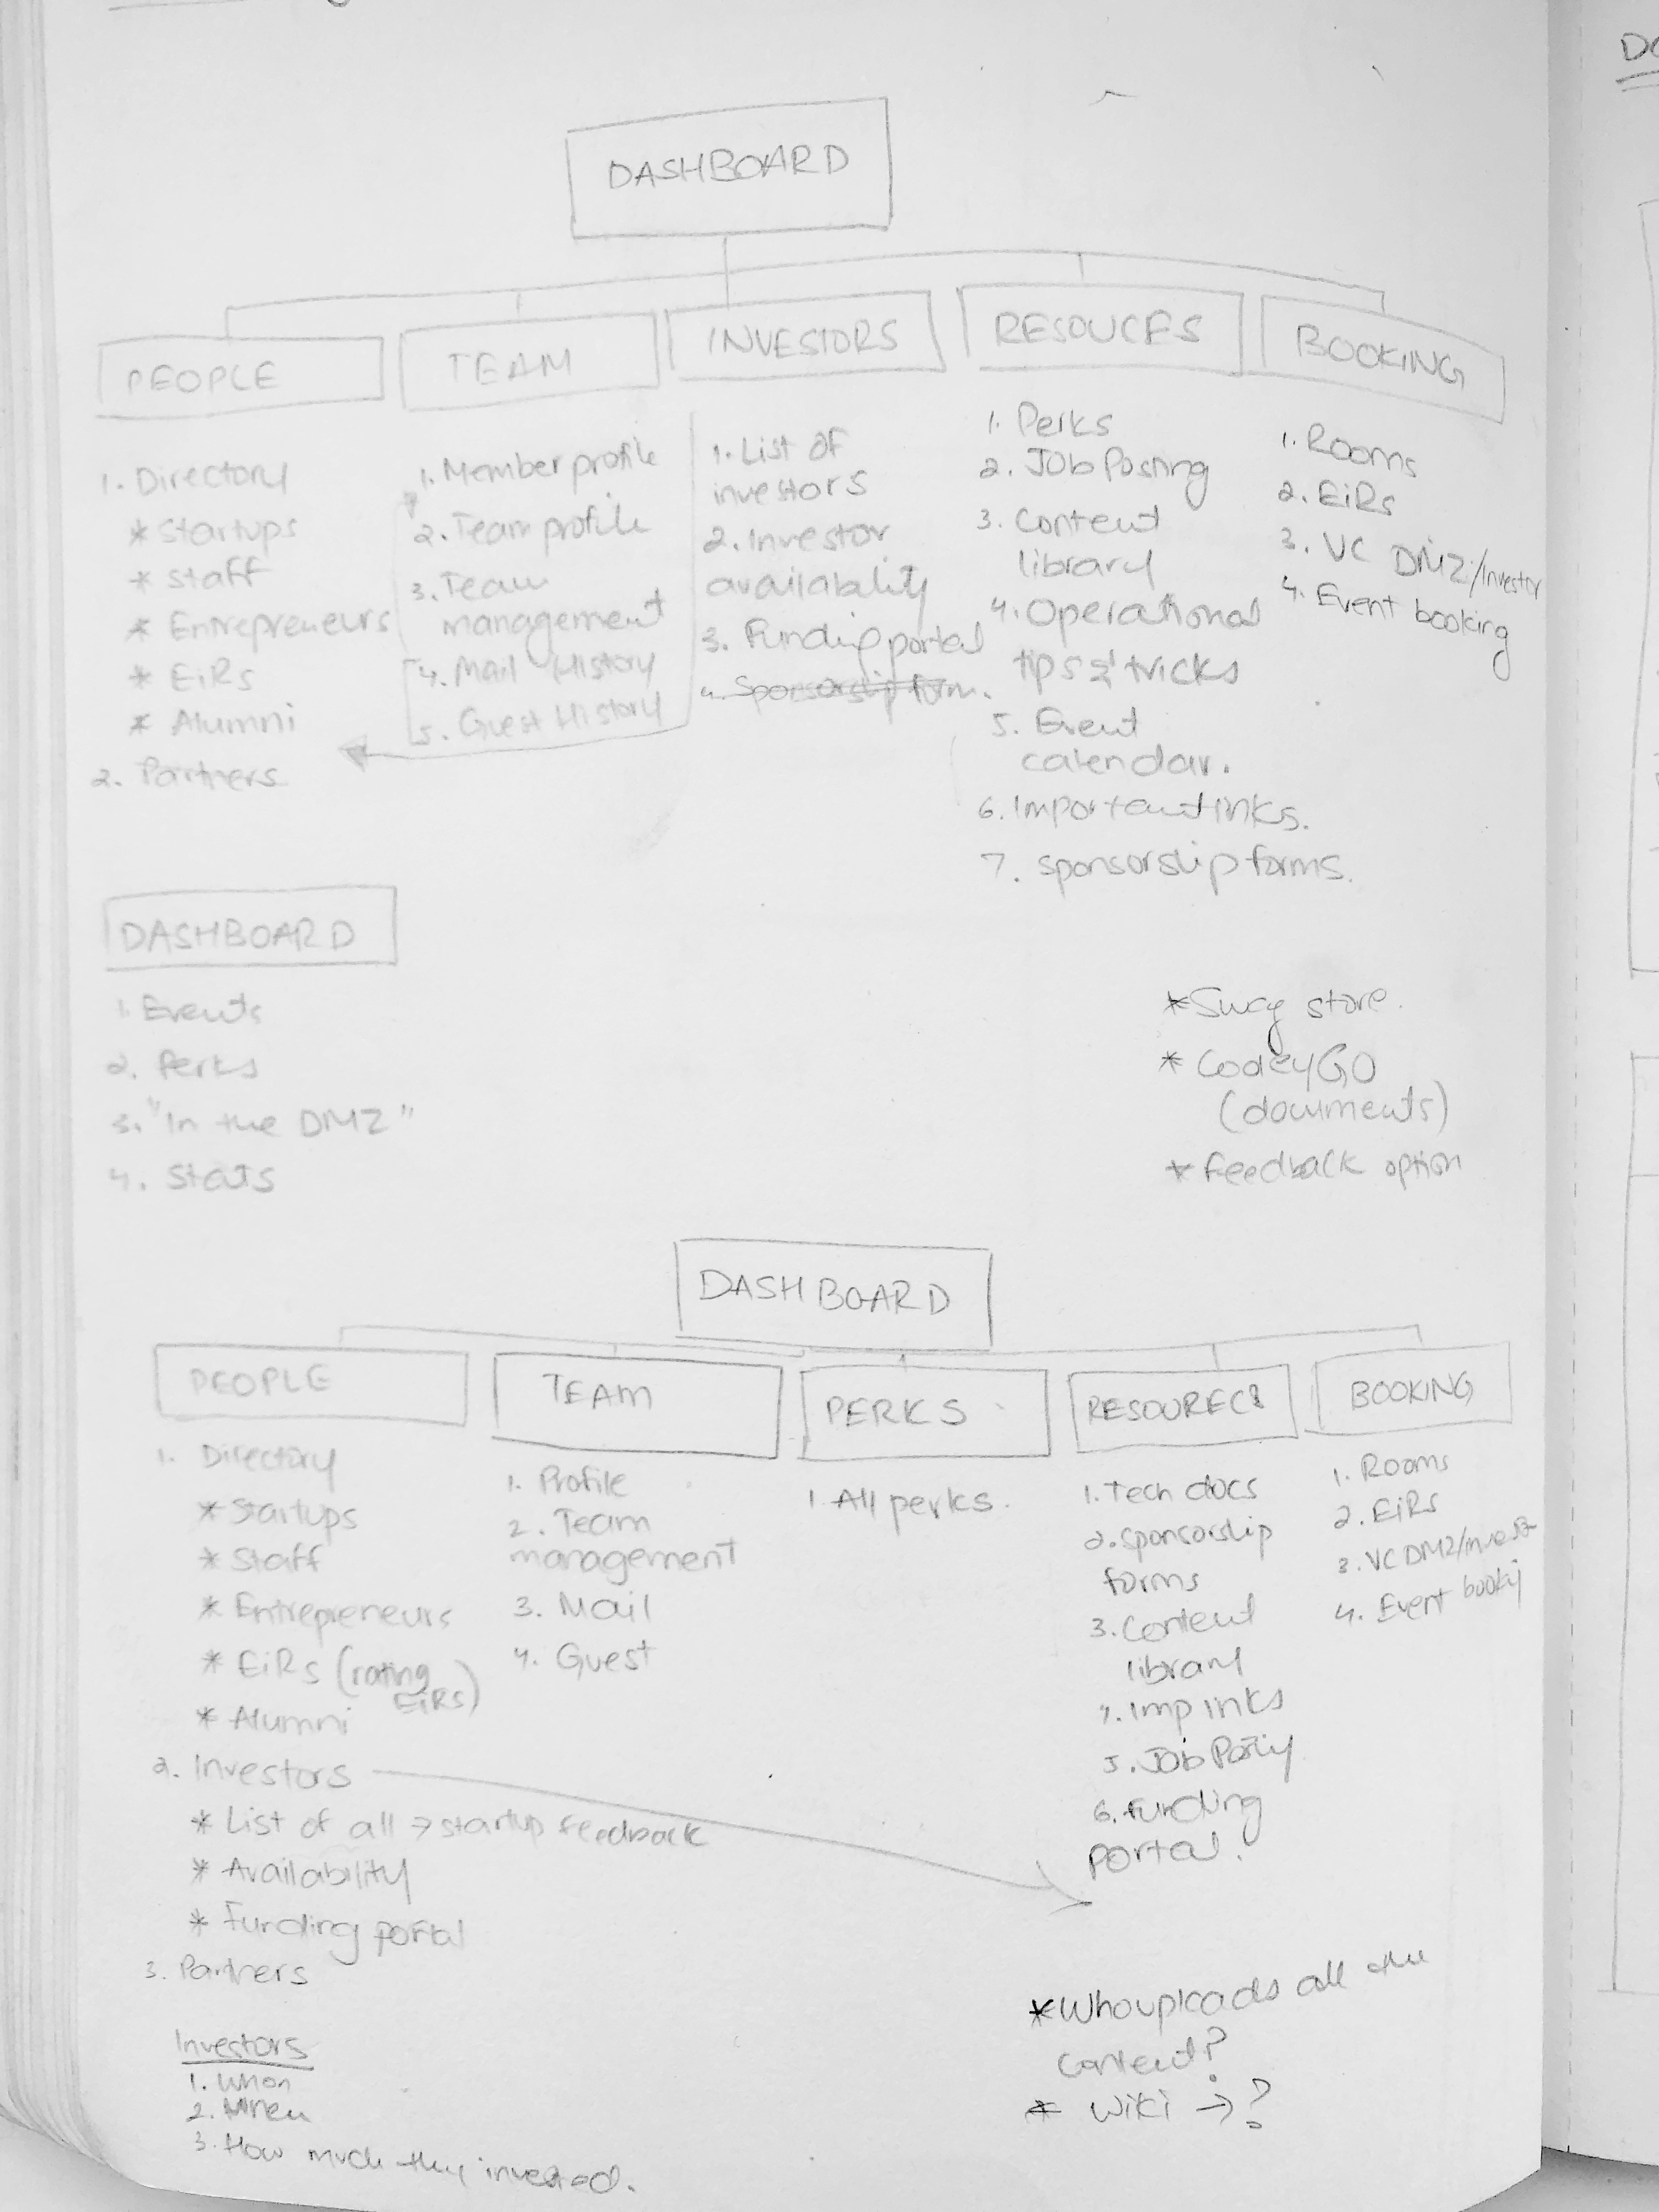 DASHBOARD
PEOPLE
1. Directory
* Startups
* Staff
* Entrepreneurs
* EiRs
* Alumni
2. Partners
TEAM
1. Member profile
2. Team profile
3. Team
management
4. Mail History
5. Guest History
INVESTORS
1. List of
investors
2. Investor
availability
3. Funding portal
4. Sponsorship form.
RESOUCES
1. Perks
2. Job Posting
3. Content
library
4. Operational
tips & tricks
5. Event
calendar.
6. Important links.
7. sponsorship forms.
BOOKING
1. Rooms
2. EiRs
3. VC DMZ/Investor
4. Event booking
DASHBOARD
1. Events
2. Perks
3. "In the DMZ"
4. Stats
* Swag store.
* CodeyGO
(documents)
* Feedback option
DASHBOARD
PEOPLE
1. Directory
* Startups
* Staff
* Entrepreneurs
* EiRs (rating
EiRs)
* Alumni
2. Investors
* List of all → startup feedback
* Availability
* Funding portal
3. Partners
TEAM
1. Profile
2. Team
management
3. Mail
4. Guest
PERKS
1. All perks.
1. Tech docs
2. Sponsorship
forms
3. Content
library
4. Imp links
5. Job
6. Funding
portal.
BOOKING
1. Rooms
2. EiRs
3. VC DMZ/
4. Event
Investors
1.
2. When
3. How much they invested.
* Who uploads all the
content?
* Wiki → ?